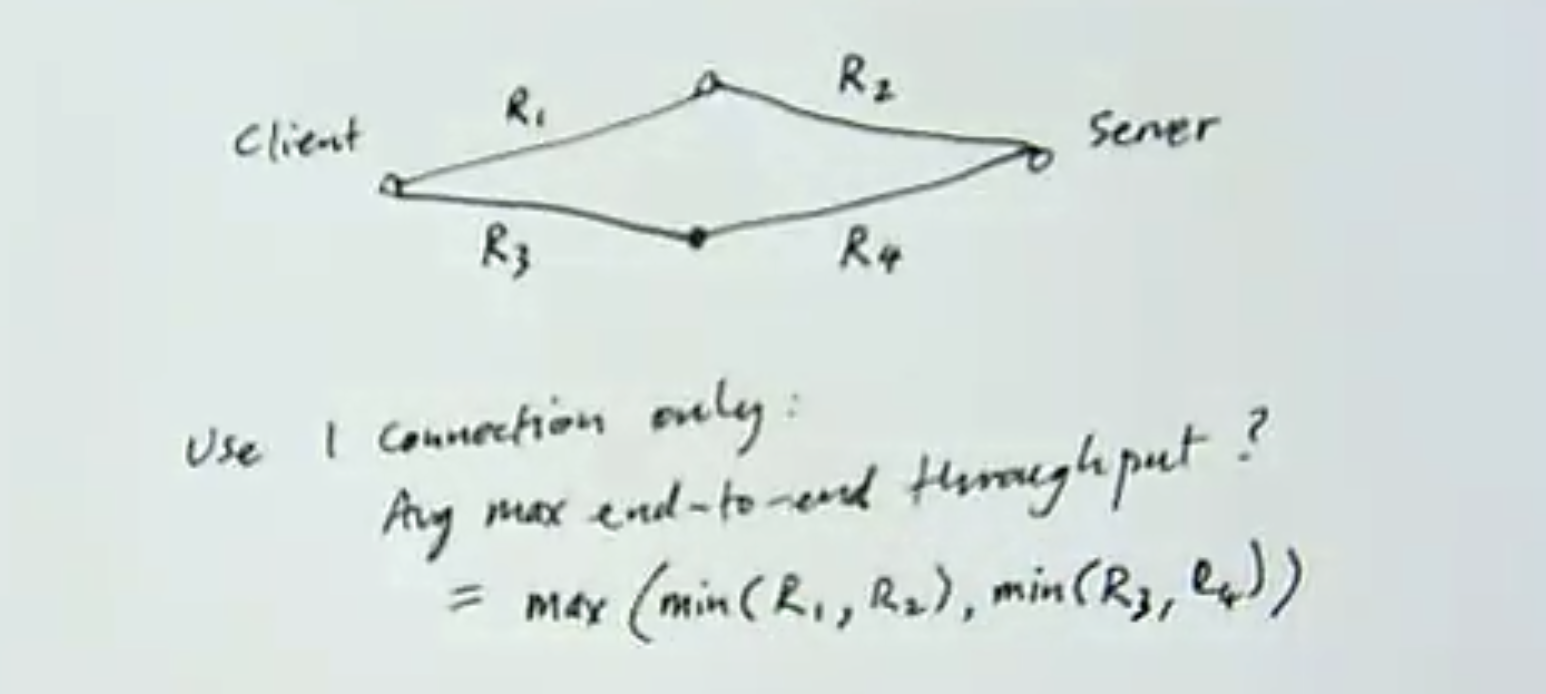 R₁
R₂
Client
Server
R₃
R₄
Use 1 connection only:
Avg max end-to-end throughput?
= max (min(R₁, R₂), min(R₃, R₄))